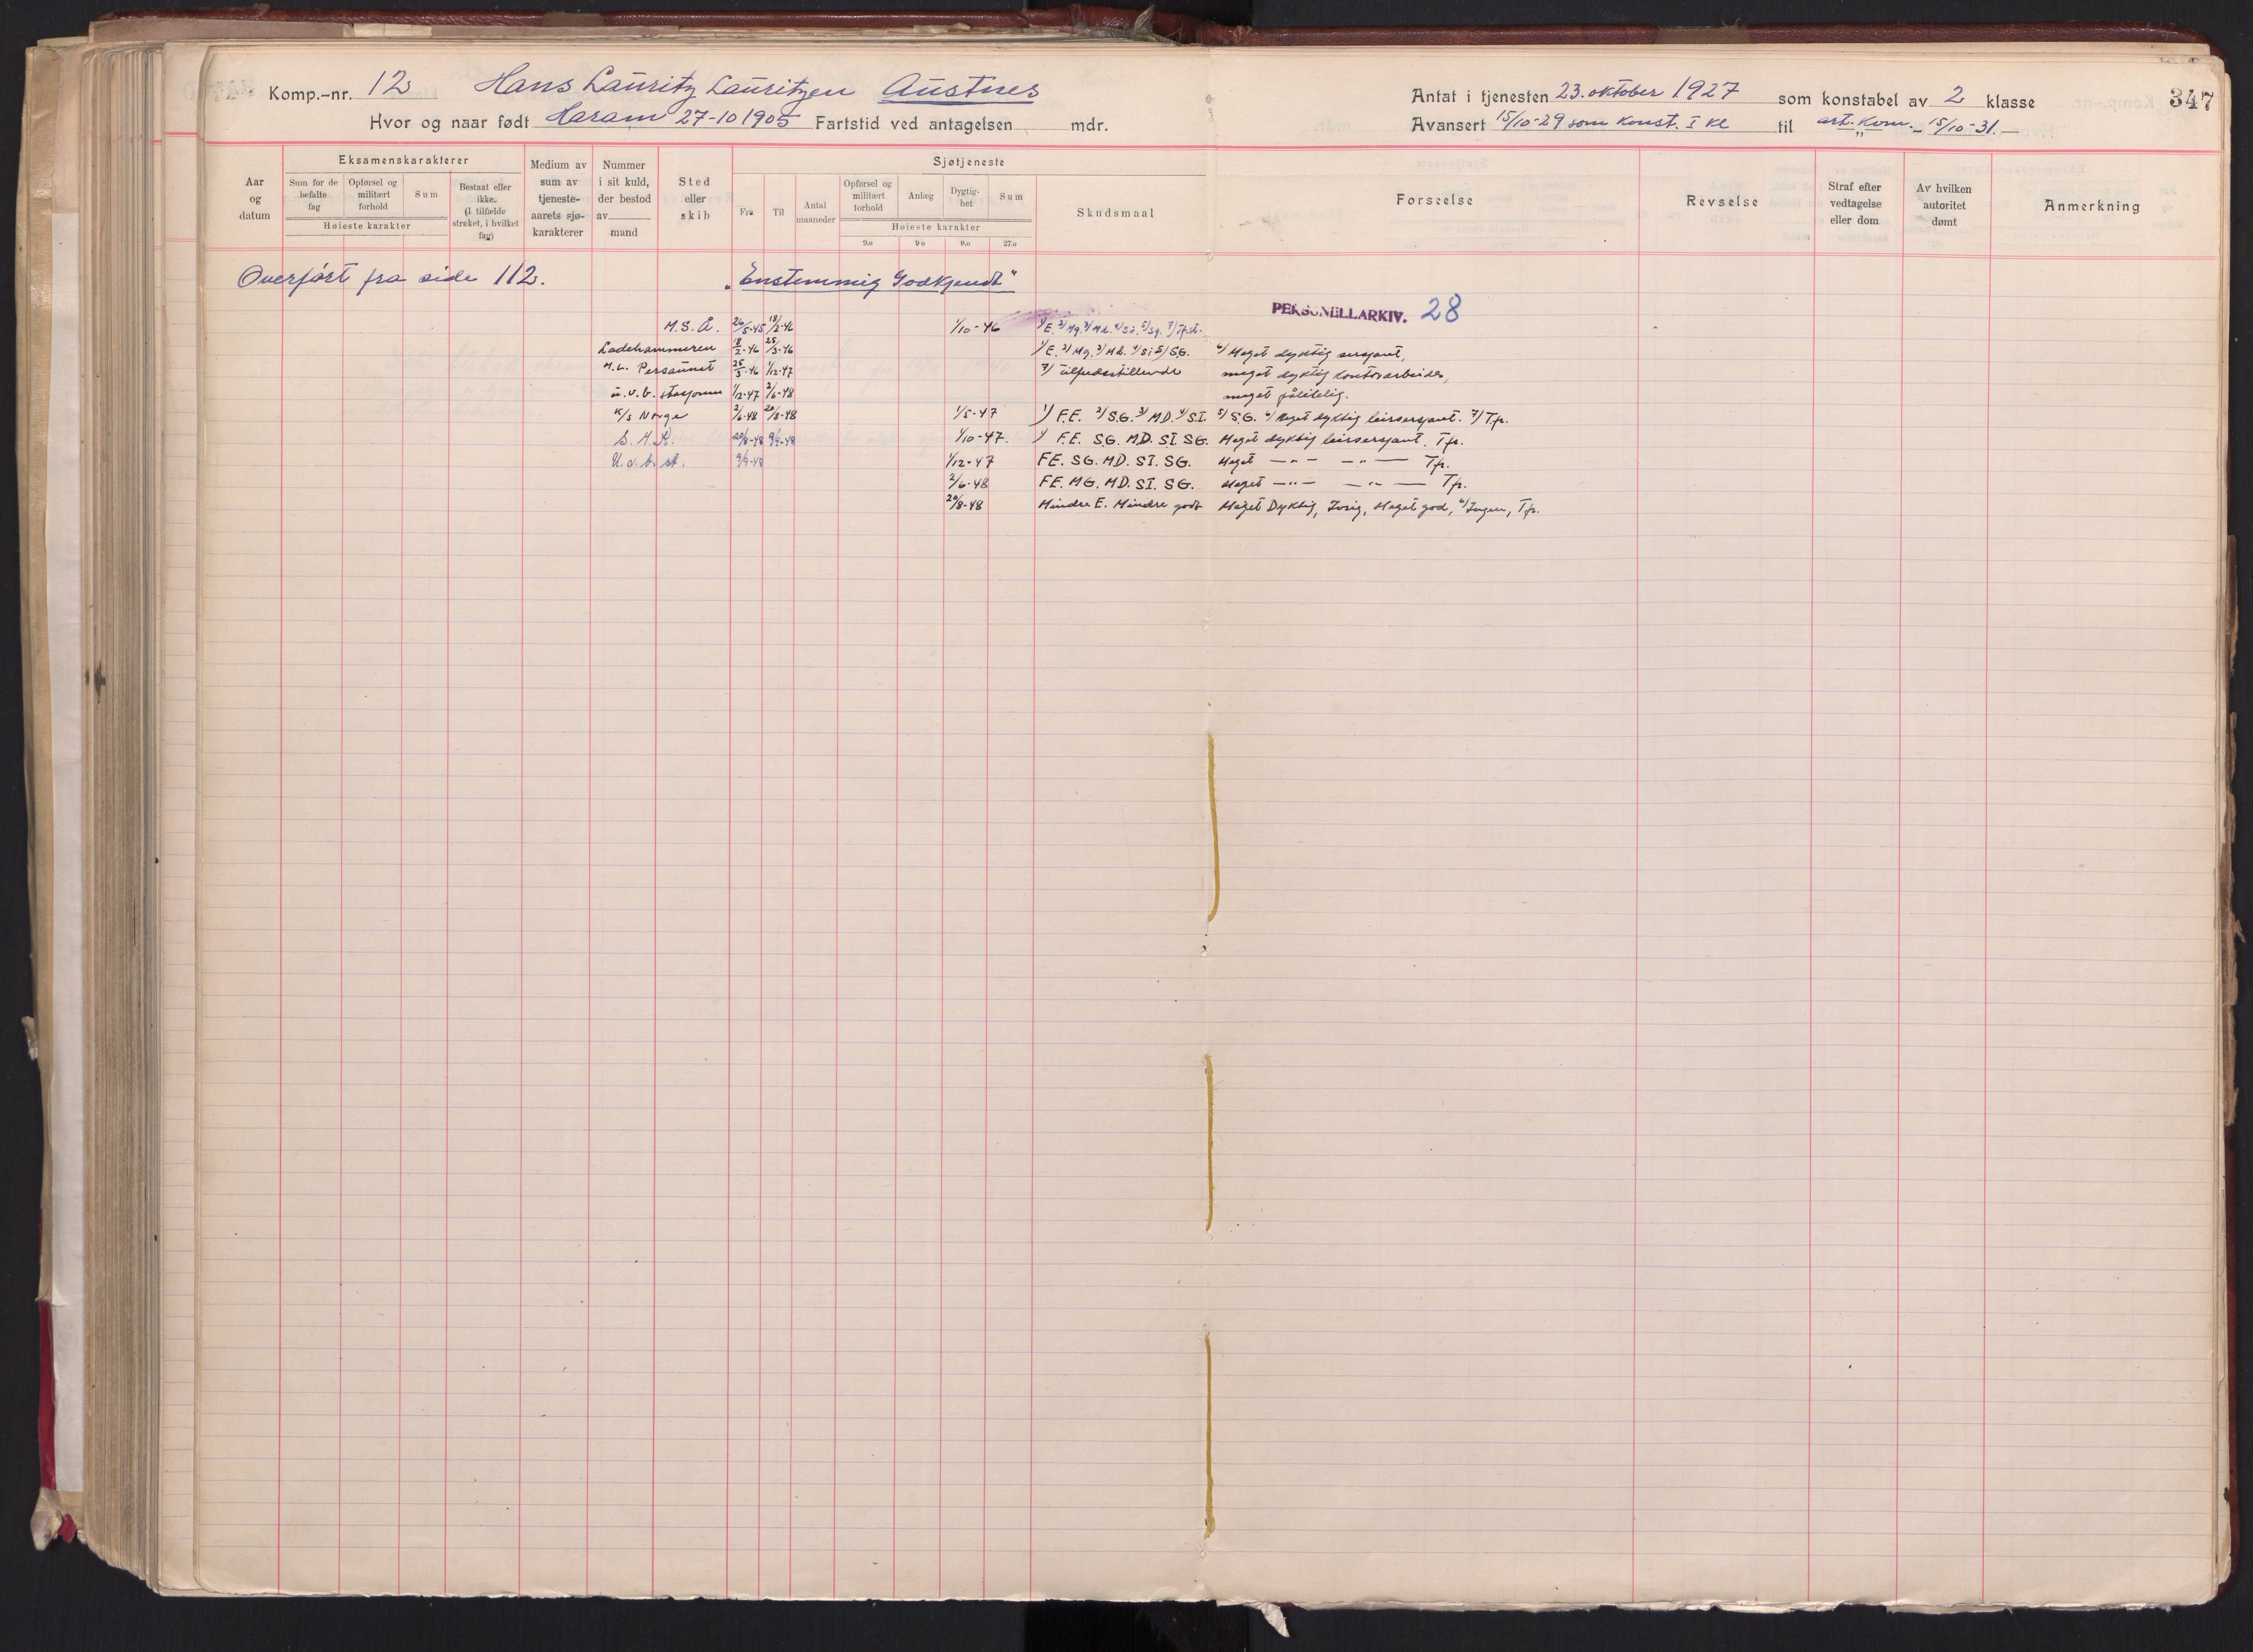 Komp.-nr. 12 Hans Lauritz Lauritzen Austnes
Hvor og naar født Haram 27-10 1905 Fartstid ved antagelsen mdr.
Antat i tjenesten 23. oktober 1927 som konstabel av 2 klasse 347
Avansert 15/10-29 som konst. I kl til art. kom. 15/10-31.
Aar og datum
Eksamenskarakterer
Sum for de befalte fag
Opførsel og militært forhold
Sum
Høieste karakter
Bestaat eller ikke. (I tilfælde strøket, i hvilket fag)
Medium av sum av tjeneste-aarets sjø-karakterer
Nummer i sit kuld, der bestod av mand
Sted eller skib
Sjøtjeneste
Fra
Til
Antal maaneder
Opførsel og militært forhold
Anlæg
Dygtig-het
Sum
Høieste karakter
9.0 9 0 9.0 27.0
Skudsmaal
Forseelse
Revselse
Straf efter vedtagelse eller dom
Av hvilken autoritet dømt
Anmerkning
Overført fra side 112. "Enstemmig Godkjendt"
PERSONELLARKIV. 28
M.S.Å. 26/5-45 18/2-46 1/10-46 1/ E. 2/ Mg. 3/ Md. 4/ Si. 5/ Sg. 7/ Tfst.
Ladehammeren 18/2-46 25/3-46 1/ E. 2/ Mg. 3/ Md. 4/ Si 5/ S.G. 6/ Meget dyktig sersjant,
Persaunet 25/3-46 1/12-47 7/ tilfredsstillende meget dyktig kontorarbeider,
u.v.b. stasjonen 1/12-47 2/6-48 meget pålitelig.
K/S Norge 2/6-48 20/8-48 1/5-47 1/ F.E. 2/ S.G. 3/ M.D. 4/ S.I. 5/ S.G. 6/ Meget dyktig leirsersjant. 7/ T.fr.
S.M.K. 20/8-48 9/9-48 1/10-47. 1/ F.E. S.G. M.D. S.I. S.G. Meget dyktig leirsersjant. T.fr.
U.v.b.st. 9/9-48 1/12-47 F.E. S.G. M.D. S.I. S.G. Meget —"— —"— T.fr.
2/6-48 F.E. M.G. M.D. S.I. S.G. Meget —"— —"— T.fr.
20/8-48 Mindre E. Mindre godt Meget Dyktig, Ivrig, Meget god, 6/ Ingen, T.fr.